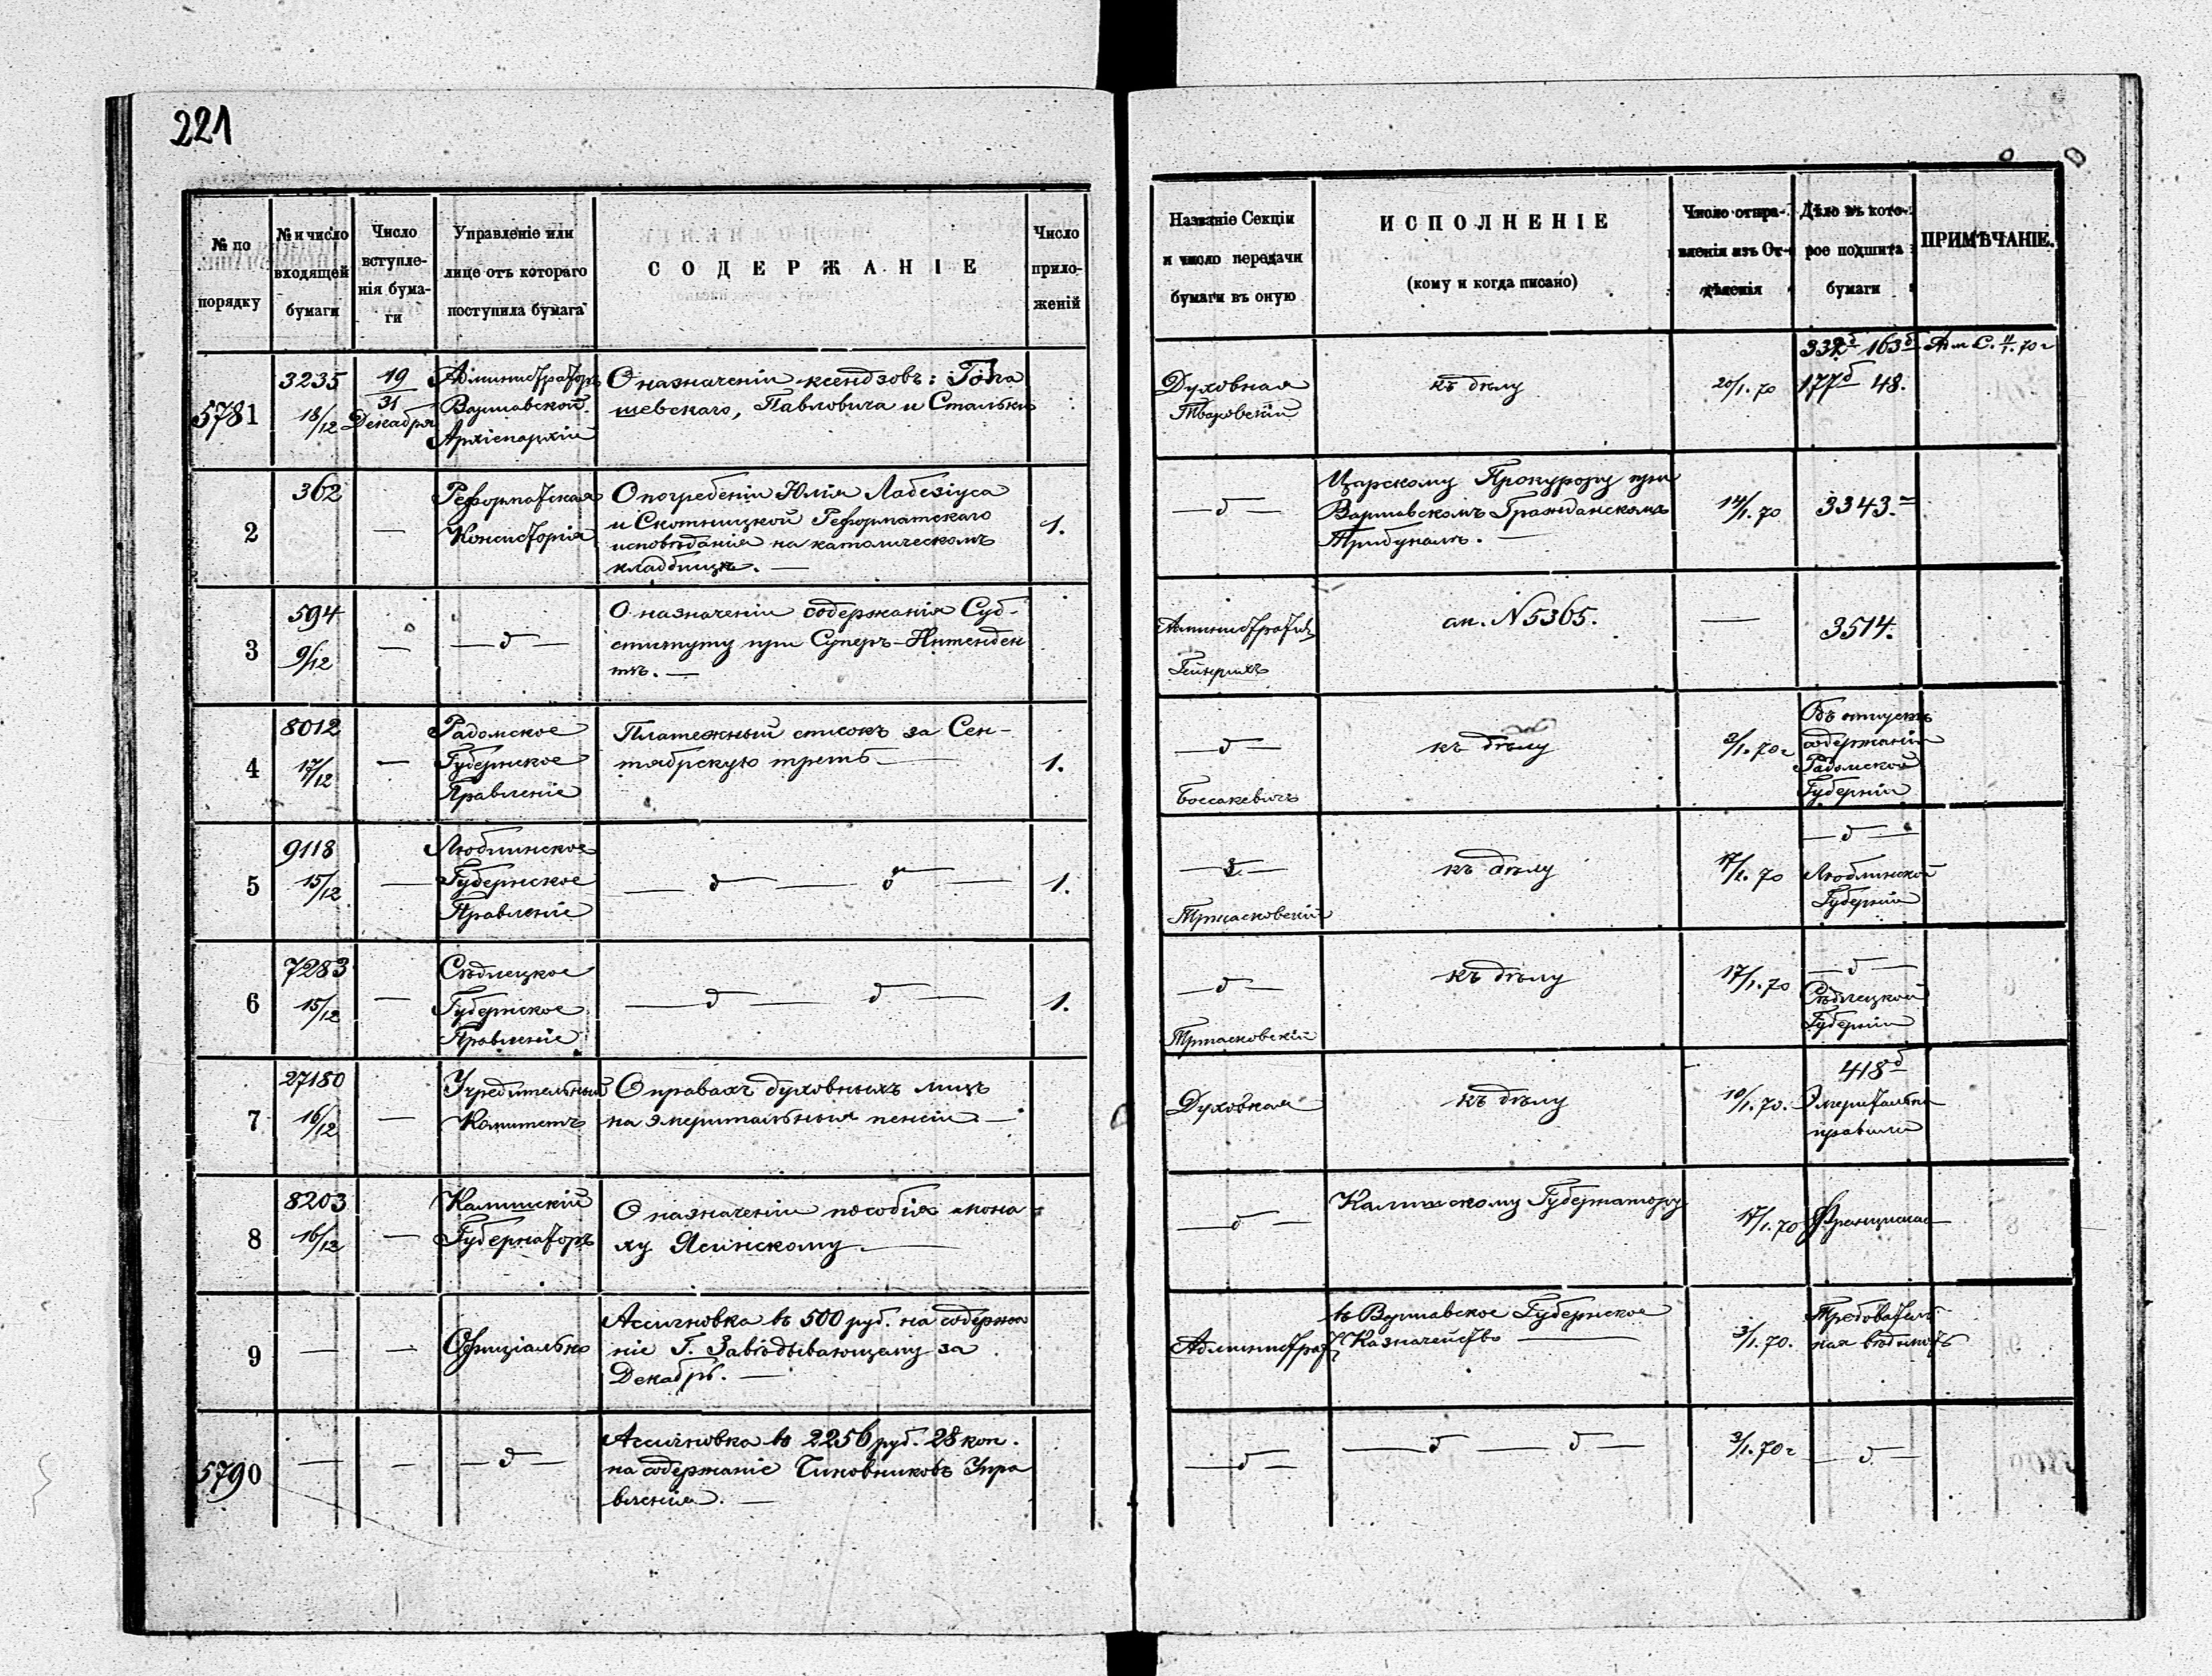 221
№ по порядку
№ и число входящей бумаги
Число вступле-нія бума-ги
Управленіе или лице отъ котораго поступила бумага
СОДЕРЖАНІЕ
Число прило-женій
Названіе Секціи и число передачи бумаги въ оную
ИСПОЛНЕНІЕ
(кому и когда писано)
Число отпра-вленія изъ От-дѣленія
Дѣло въ кото-рое подшита бумаги
ПРИМѢЧАНІЕ.
5781
3235
18/12
19
31
Декабря
Администраторъ
Варшавской
Архіепархіи
О назначеніи ксендзовъ:
шевскаго, Павловича и
Духовная
къ дѣлу
20/1. 70
332 163
177 48.
2
362
—
Реформатская
Консисторія
О погребеніи Юлія Лабезіуса
и Скотницкой Реформатскаго
исповѣданія на католическомъ
кладбищѣ. —
1.
— д —
Царскому Прокурору при
Варшавскомъ Гражданскомъ
Трибуналѣ. —
14/1. 70
3343.
3
594
9/12
—
— д —
О назначеніи содержанія Суб-
ституту при Суперъ-Интенден
тѣ. —
Гейнрихъ
ап. N 5365.
—
3514.
4
8012
17/12
—
Радомское
Губернское
Правленіе
Платежный списокъ за Сен-
тябрскую треть —
1.
— д —
Боссакевичъ
къ дѣлу
3/1. 70 г
Объ отпускѣ
содержанія
Радомской
Губерніи
5
9118
15/12
—
Люблинское
Губернское
Правленіе
— д — д —
1.
— д —
къ дѣлу
17/1. 70
— д —
Люблинской
Губерніи
6
7283
15/12
—
Сѣдлецкое
Губернское
Правленіе
— д — д —
1.
— д —
къ дѣлу
17/1. 70
— д —
Сѣдлецкой
Губерніи
7
27180
16/12
—
Учредительный
Комитетъ
О правахъ духовныхъ лицъ
на эмеритальныя пенсіи. —
Духовная
къ дѣлу
10/1. 70.
418
правила
8
8203
16/12
—
Калишскій
Губернаторъ
О назначеніи пособія мона
ху Ясинскому. —
— д —
Калишскому Губернатору
17/1. 70
9
—
—
Офиціально
Ассигновка въ 500 руб. на содержа
ніе Г. Завѣдывающему за
Декабрь. —
въ Варшавское Губернское
Казначейство —
3/1. 70.
Требователь
ная вѣдомость
5790
—
—
— д —
Ассигновка въ 2256 руб. 28 коп.
на содержаніе Чиновниковъ Упра
вленія. —
— д —
— д — д —
3/1. 70 г
— д —